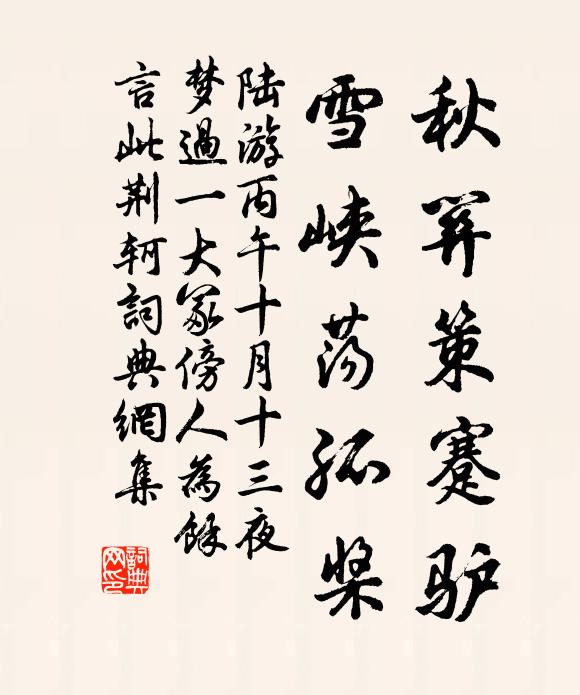 秋関策蹇驴
雪峡荡孤桨
陆游丙午十月十三夜
梦過一大冢傍人為餘
言此荆轲詞典網集
詞典
网印